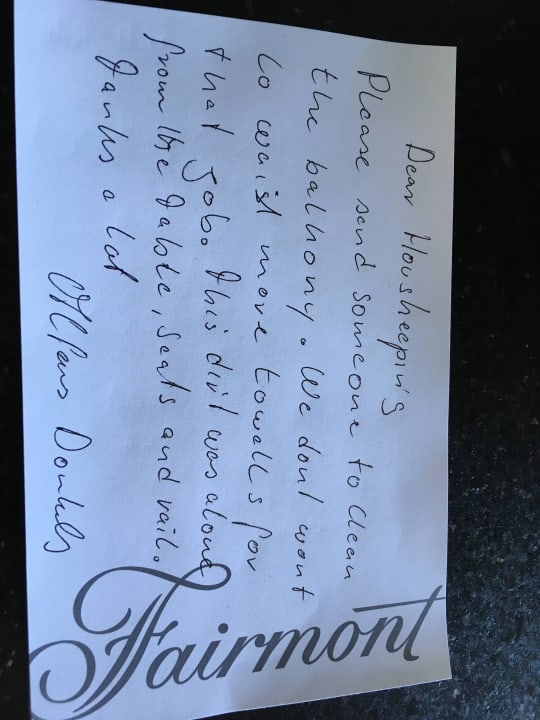 Dear Housheeping
Please send someone to clean
the balhony. We don't want
to waist more towells for
that Job. This dirt was alone
from the table, seats and rail.
Tanhs a lot
Fairmont